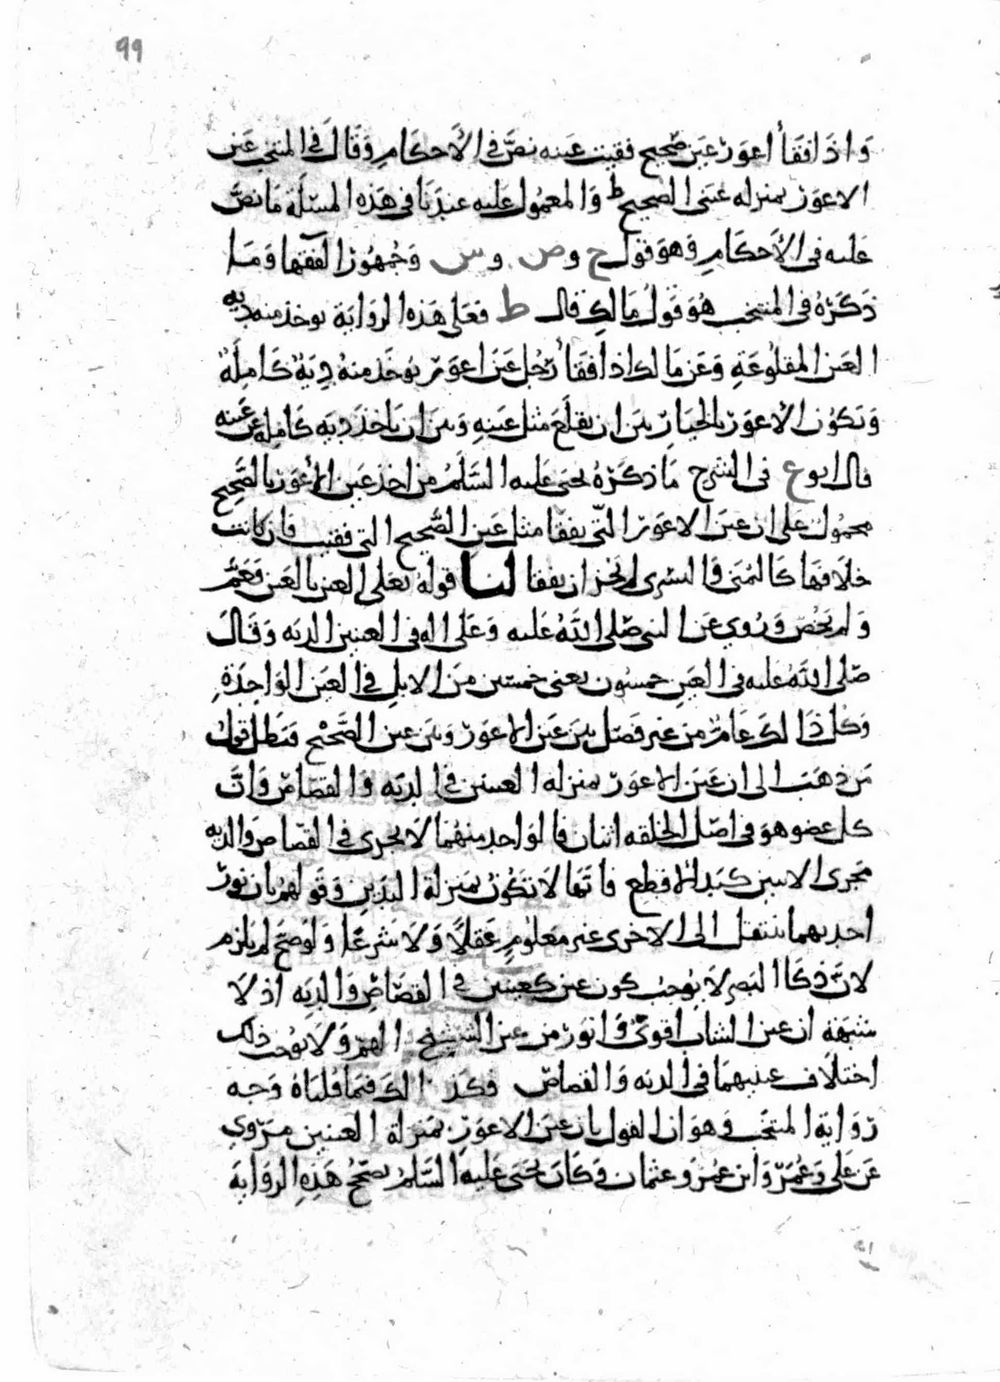 ٩٩
وَاذَا فَقَأ اعوَر عَين صحيح فقيت عَينه نصَّ في الأحكَامِ وَقَال في المنتخب عَين
الاعوَر بمنزله عيني الصحيح ط وَالمعمُول عليه عندَنا في هَذه المسئلَة مَا نصَّ
عليه في الأحكَامِ وَهوَ قول ح و ص و س وَجُمهُور الفقها وَمَا
ذكَرَهُ في المنتخب هُوَ قَولُ مَالِك قال ط فعَلى هَذه الروَايَة يوخذ منه ديه
العَين المقلوعَةِ وَعَن مَالك اذا فقَأ رَجُل عَين اعوَر يُوخَذ منهُ دِيَةٌ كَامِلَةٌ
وَيَكُون الأعوَر بالخيَار بين ان يقلَعَ مثل عَينهِ وَبين ان يَاخذ دِيَه كَامِله عن عَينه
قال ابو ع في الشرح مَا ذكَرَهُ يحيَى عليه السَّلَمُ من اخذ عَين الأعوَر بالصَّحِيح
محمُول عَلى ان عين الاعوَر التي يفقا مثل عَين الصَّحيح التي فقيت فان كانت
خلافهَا كَاليُمنَى وَاليسرى لم يجز ان يفقا لنا قولهُ تعَلى العين بالعَين فعَمَّ
وَلم يَخُص وَرُوي عَن النبي صَلى اللهُ عَليه وَعَلى اله في العينين الديَه وَقَالَ
صَلى اللهُ عليه في العَينِ خمسُون يعنى خمسين مِنَ الابِلِ في العَين الوَاحِدَة
وَكل ذَالكَ عَامٌّ من غير فَصل بَينَ عَين الاعوَر وَبين عين الصَّحيْح فبَطل قولُ
مَن ذهَبَ الى ان عَين الاعوَر بمنزله العينين في الديَه وَالقصَاص وَانَّ
كل عضو هوَ في اصل الخلقه اثنان فالوَاحد منهُمَا لَا يجرى في القصَاص وَالديه
مَجرى الاثنين كيَد الاقطع فانهَا لَا تكُونُ بمَنزلة اليدَين وَقَولهُم بان نور
احديهما ينتقل الى الاخرى غير معلُومٍ عَقلًا وَلَا شرعًا وَلَو صَحَّ لم يلزم
لانَّ ذكَا البَصر لَا يُوجبُ كون عين كعينين في القصَاصِ وَالديَه اذ لَا
شبهَة ان عين الشاب اقوَى وَانوَر من عين الشيخ الهرم وَلَا يُوجبُ ذلك
اختلاف عينيهمَا في الديَه وَالقصاص وكذَالكَ فيمَا قُلنَاهُ وَجه
رِوَايَة المنتخَب وَهوَ ان القول بان عين الاعوَر بمَنزلة العينين مروي
عَن عَلى وَعُمَرَ وَابن عُمَرَ وعثمان وَكَان يحيَى عَليه السَّلمُ يصحّحُ هَذِهِ الروَايَة